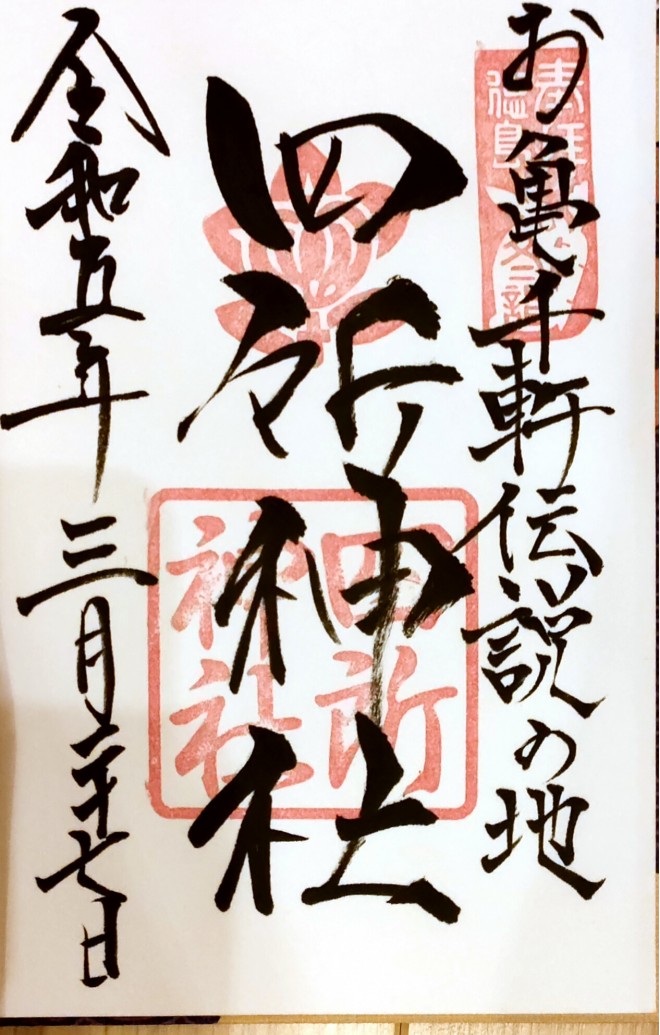 お亀千軒伝説の地
奉拝
四所神社
四所
神社
令和五年三月二十七日